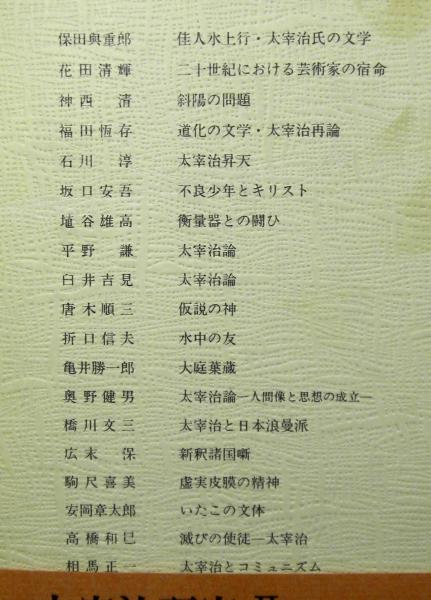 保田與重郎 佳人水上行・太宰治氏の文学
花田清輝 二十世紀における芸術家の宿命
神西清 斜陽の問題
福田恆存 道化の文学・太宰治再論
石川淳 太宰治昇天
坂口安吾 不良少年とキリスト
埴谷雄高 衡量器との闘ひ
平野謙 太宰治論
臼井吉見 太宰治論
唐木順三 仮説の神
折口信夫 水中の友
亀井勝一郎 大庭葉蔵
奥野健男 太宰治論—人間像と思想の成立—
橋川文三 太宰治と日本浪曼派
広末保 新釈諸国噺
駒尺喜美 虚実皮膜の精神
安岡章太郎 いたこの文体
高橋和巳 滅びの使徒—太宰治
相馬正一 太宰治とコミュニズム